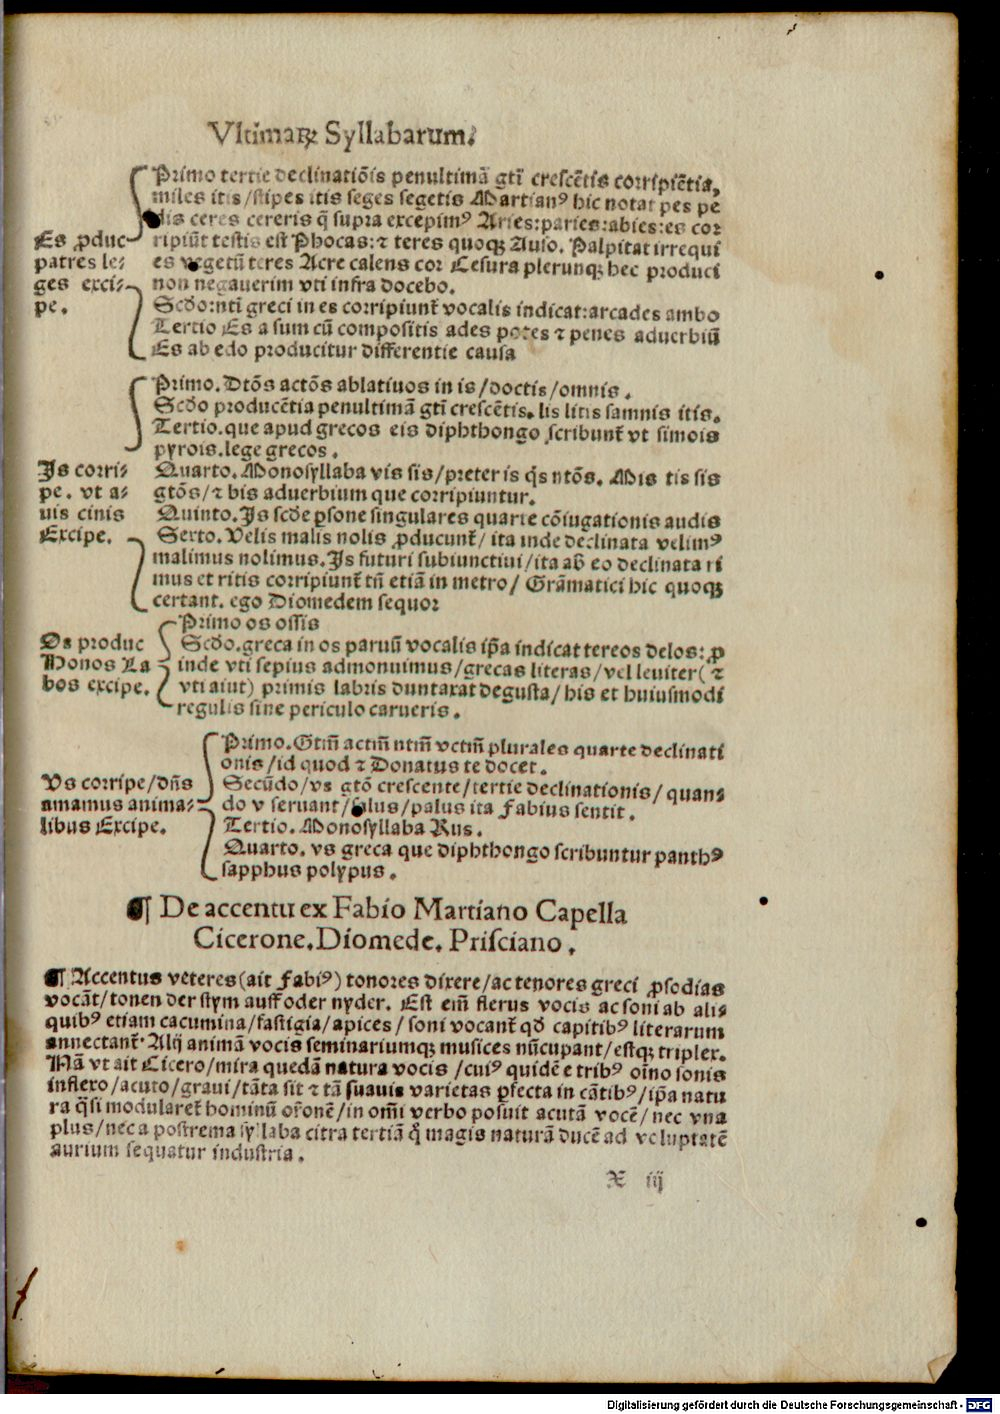 Vltimaꝝ Syllabarum.
Es ꝓduc
patres le⸗
ges exci⸗
pe.
Primo tertie declinatiōis penultimā gti crescētis corripiētia,
miles itis/stipes itis seges segetis Martianꝰ hic notat pes pe
dis ceres cereris q̄ supra excepimꝰ Aries:paries:abies:es cor
ripiūt testis est Phocas:⁊ teres quoqꝫ Auso. Palpitat irrequi
es vegetū teres Acre calens cor Cesura plerunqꝫ hec produci
non negauerim vti infra docebo.
Scd̄o:nti greci in es corripiunt̄ vocalis indicat:arcades ambo
Tertio Es a sum cū compositis ades potes ⁊ penes aduerbiū
Es ab edo producitur differentie causa
Is corri⸗
pe. vt a⸗
uis cinis
Excipe.
Primo. Dtōs actōs ablatiuos in is/doctis/omnis.
Scd̄o producētia penultimā gti crescētis. lis litis samnis itis.
Tertio. que apud grecos eis diphthongo scribunt̄ vt simois
pyrois. lege grecos.
Quarto. Monosyllaba vis sis/preter is q̄s ntōs. Mis tis sis
gtōs/⁊ bis aduerbium que corripiuntur.
Quinto. Is scd̄e ꝑsone singulares quarte cōiugationis audis
Serto. Velis malis nolis ꝓducunt̄/ ita inde declinata velimꝰ
malimus nolimus. Is futuri subiunctiui/ita ab eo declinata ri
mus et ritis corripiunt̄ tn̄ etiā in metro/ Grāmatici hic quoqꝫ
certant. ego Diomedem sequor
Os produc
Honos La
bos excipe.
Primo os ossis
Scd̄o. greca in os paruū vocalis ip̄a indicat tereos delos: ꝓ
inde vti sepius admonuimus/grecas literas/vel leuiter( ⁊
vti aiut) primis labris duntaxat degusta/ his et huiusmodi
regulis sine periculo carueris.
Vs corripe/dn̄s
amamus anima⸗
libus Excipe.
Primo. Gtm̄ actm̄ ntm̄ vctm̄ plurales quarte declinati
onis/id quod ⁊ Donatus te docet.
Secūdo/vs gtō crescente/tertie declinationis/ quan⸗
do v seruant/salus/palus ita Fabius sentit.
Tertio. Monosyllaba Rus.
Quarto. vs greca que diphthongo scribuntur panthꝰ
sapphus polypus.
¶ De accentu ex Fabio Martiano Capella
Cicerone. Diomede. Prisciano.
¶ Accentus veteres(ait Fabiꝰ) tonores dixere/ac tenores greci ꝓsodias
vocāt/tonen der stym auff oder nyder. Est em̄ flexus vocis ac soni ab ali⸗
quibꝰ etiam cacumina/fastigia/apices/ soni vocant̄ qd̄ capitibꝰ literarum
annectant̄. Alij animā vocis seminariumqꝫ musices nūcupant/estqꝫ triplex.
Nā vt ait Cicero/mira quedā natura vocis/cuiꝰ quidē e tribꝰ oīno sonis
inflexo/acuto/graui/tāta sit ⁊ tā suauis varietas ꝑfecta in cātibꝰ/ip̄a natu
ra q̄si modularet̄ hominū or̄onē/in om̄i verbo posuit acutā vocē/ nec vna
plus/nec a postrema syllaba citra tertiā q̊ magis naturā ducē ad voluptatē
aurium sequatur industria.
X iij
Digitalisierung gefördert durch die Deutsche Forschungsgemeinschaft - DFG